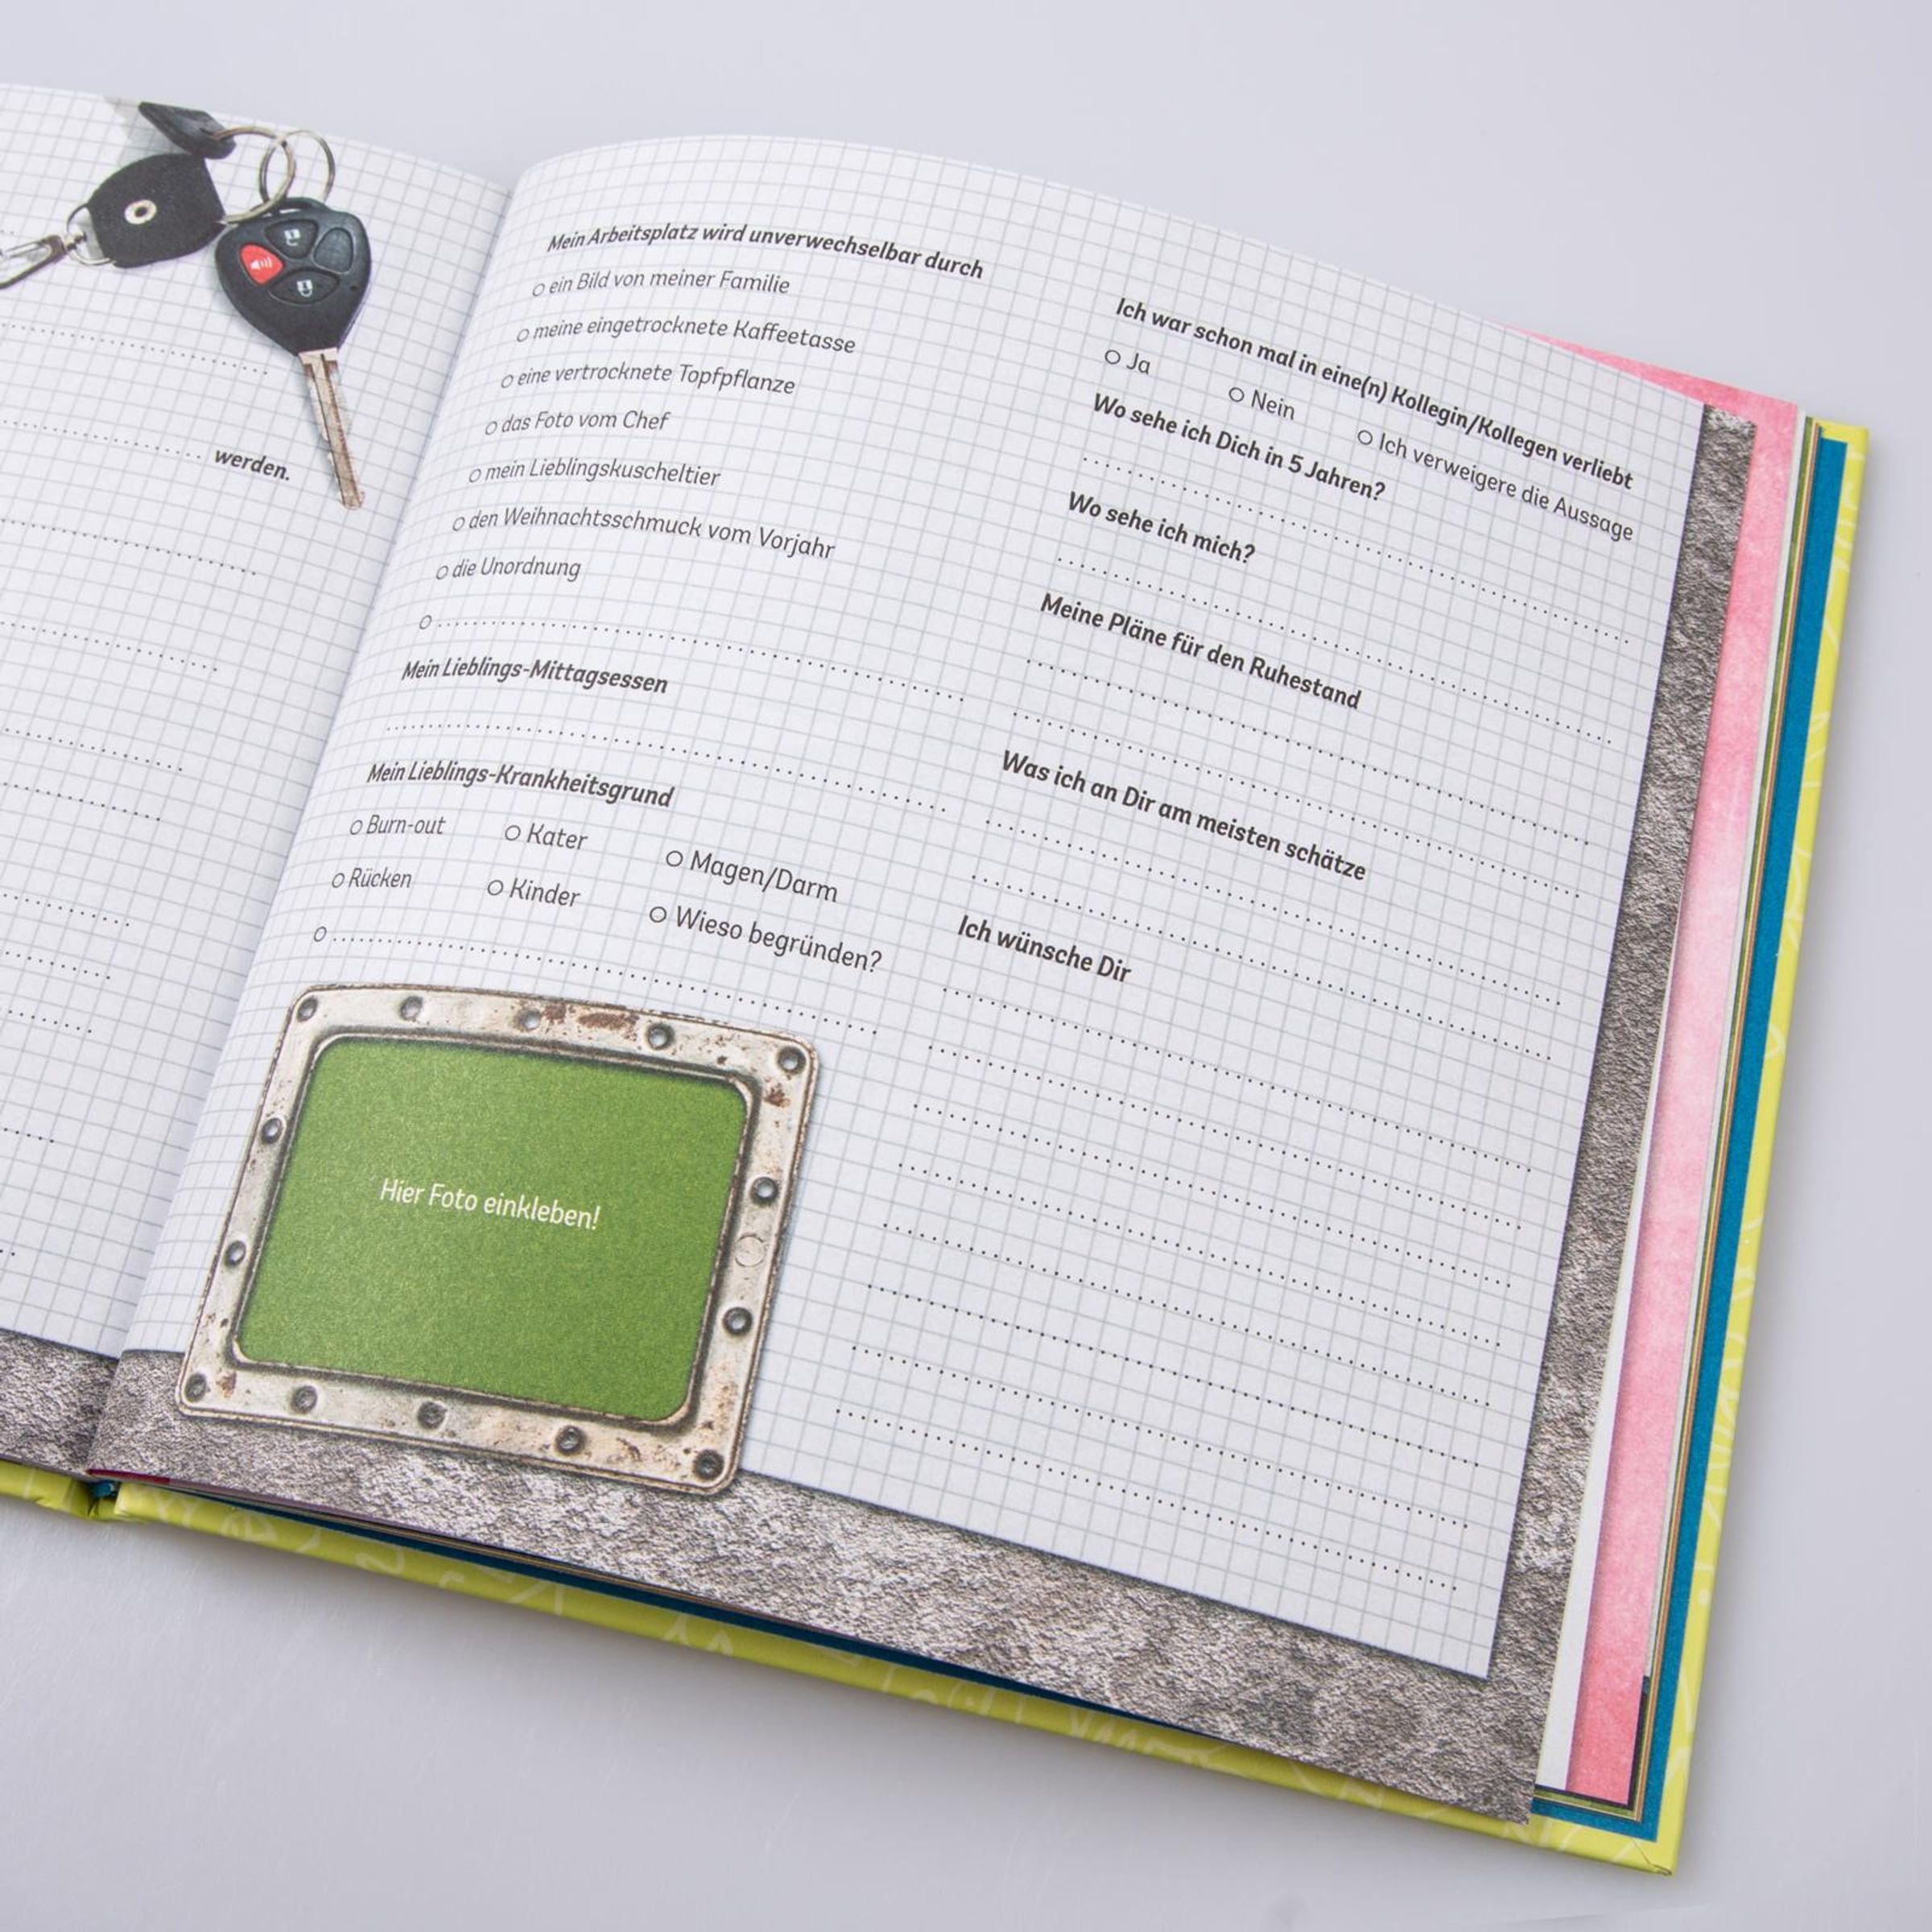 werden.
Mein Arbeitsplatz wird unverwechselbar durch
ein Bild von meiner Familie
meine eingetrocknete Kaffeetasse
eine vertrocknete Topfpflanze
das Foto vom Chef
mein Lieblingskuscheltier
den Weihnachtsschmuck vom Vorjahr
die Unordnung
Mein Lieblings-Mittagsessen
Mein Lieblings-Krankheitsgrund
Burn-out Kater Magen/Darm
Rücken Kinder Wieso begründen?
Hier Foto einkleben!
Ich war schon mal in eine(n) Kollegin/Kollegen verliebt
Ja Nein Ich verweigere die Aussage
Wo sehe ich Dich in 5 Jahren?
Wo sehe ich mich?
Meine Pläne für den Ruhestand
Was ich an Dir am meisten schätze
Ich wünsche Dir